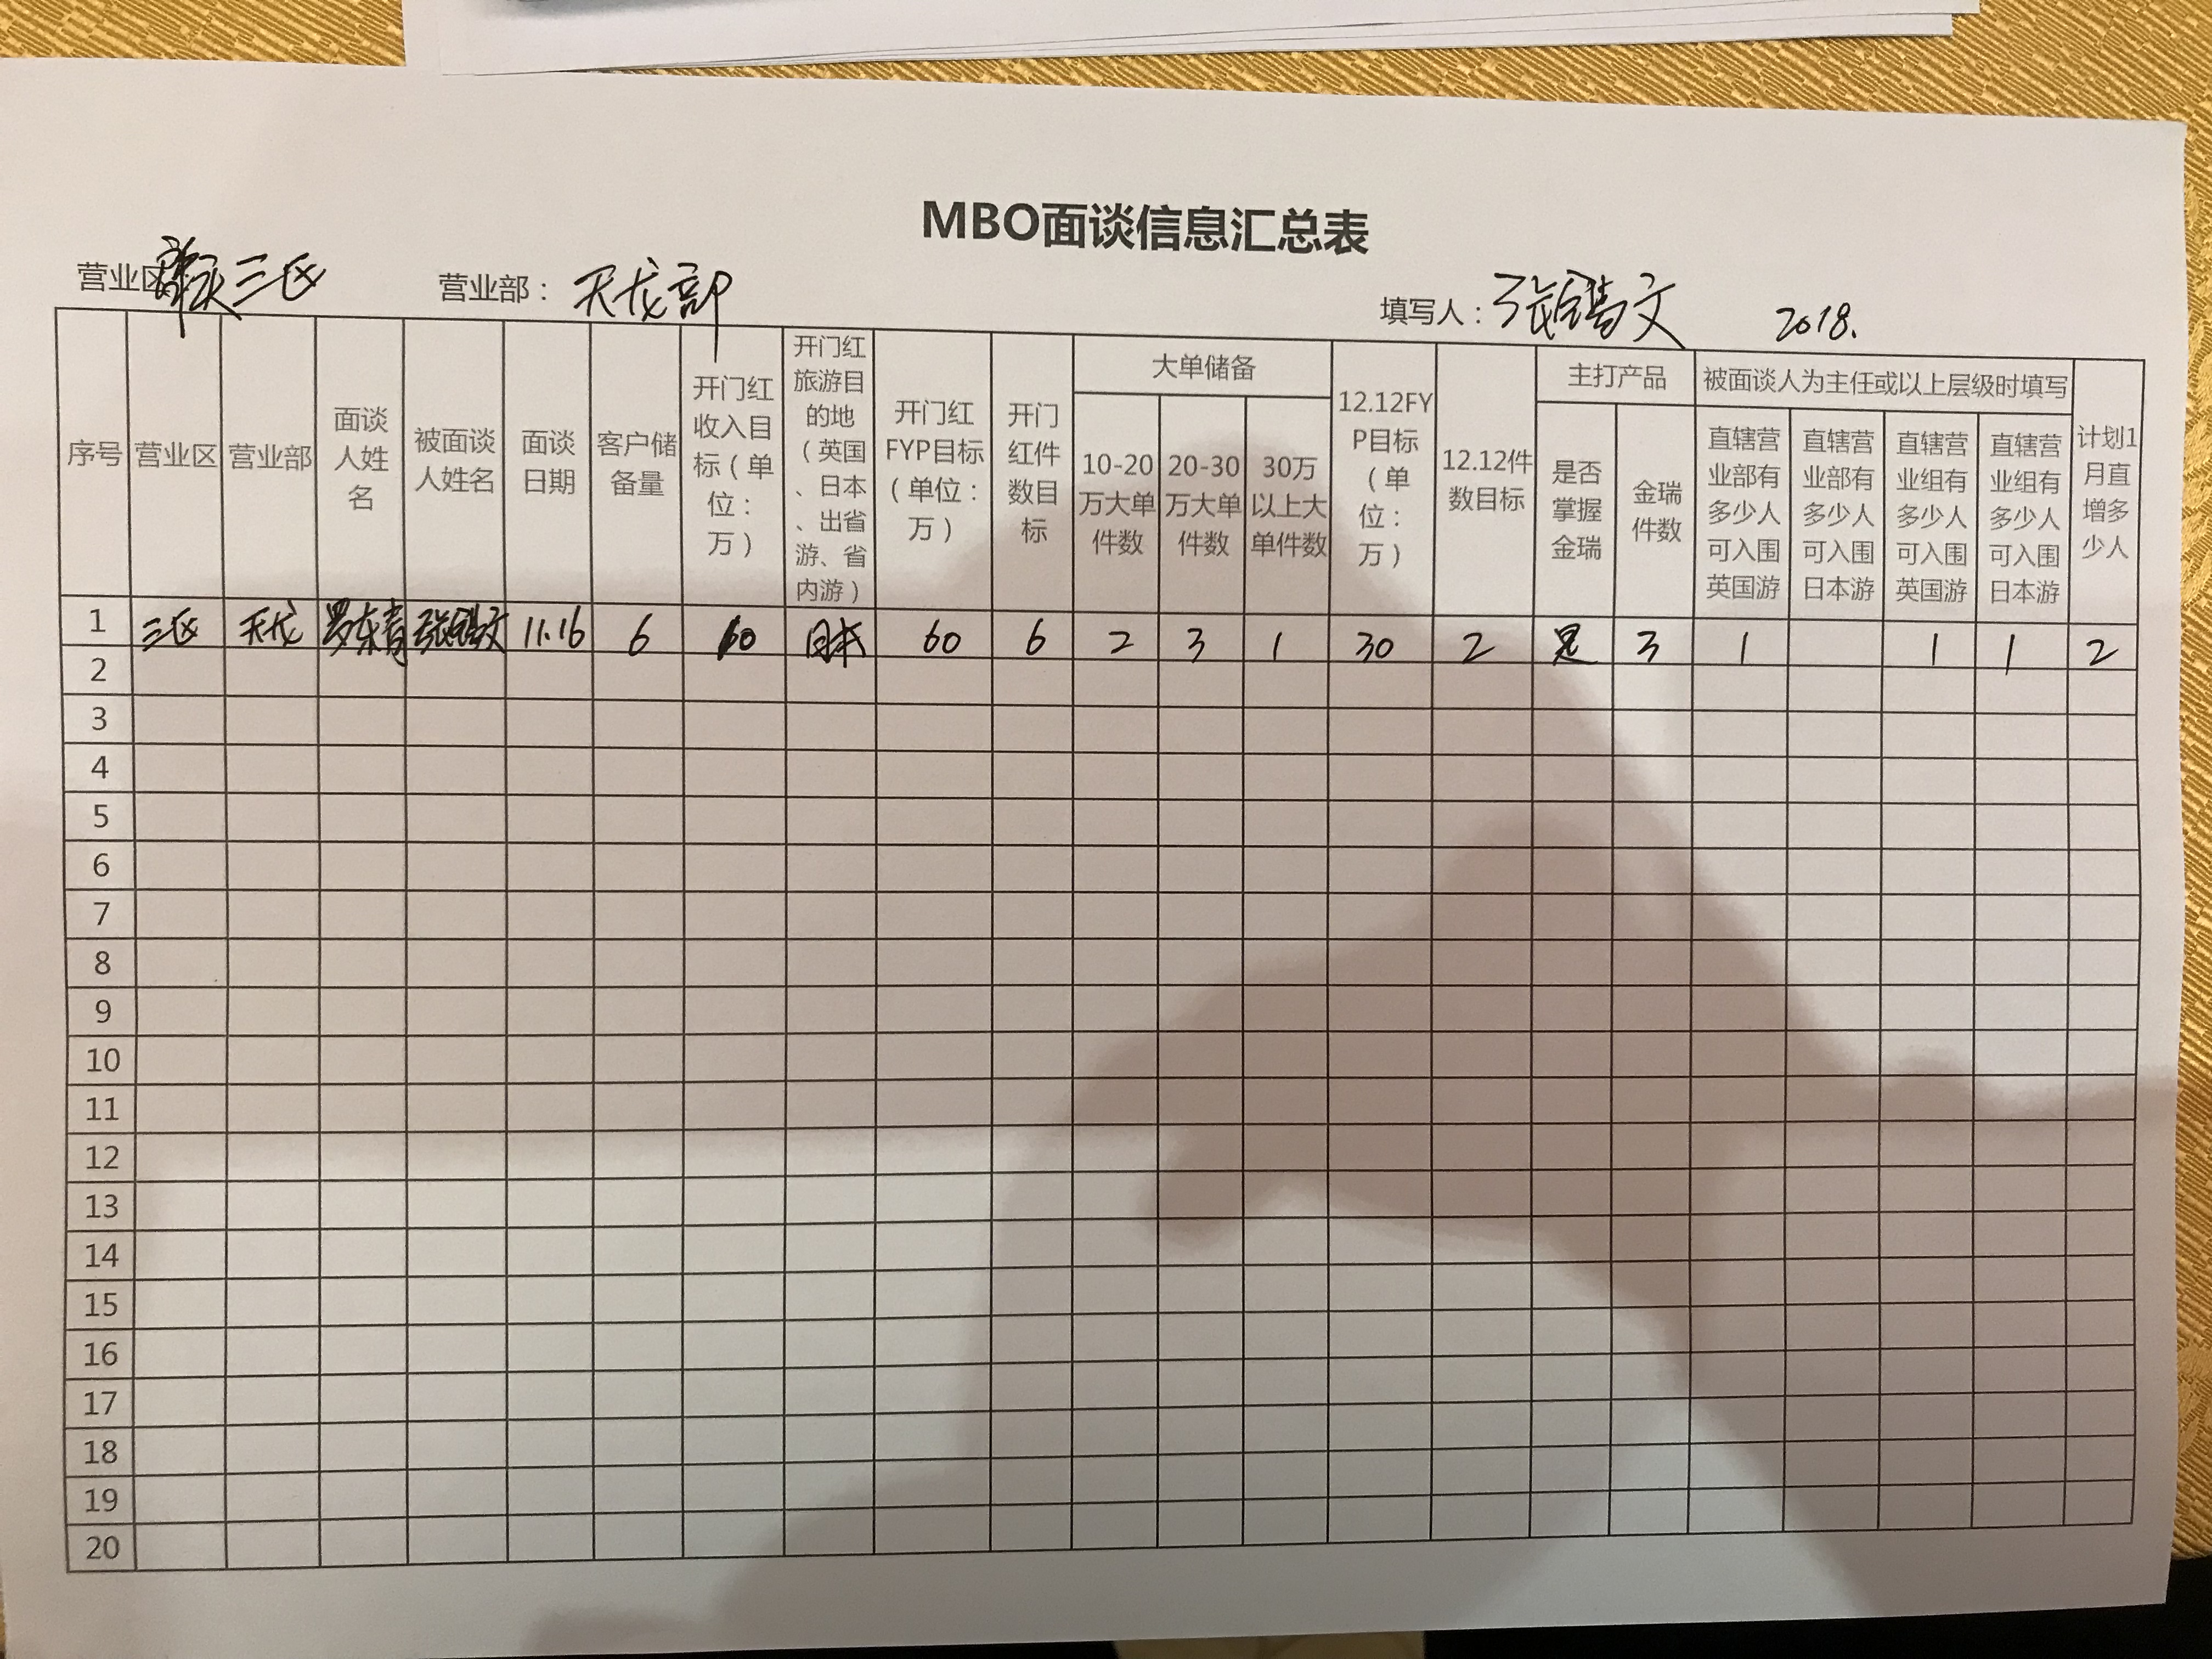 MBO面谈信息汇总表
营业区 三区 营业部：天龙部 填写人：张 文 2018.
序号 营业区 营业部 面谈人姓名 被面谈人姓名 面谈日期 客户储备量 开门红收入目标（单位：万） 开门红旅游目的地（英国、日本、出省游、省内游） 开门红FYP目标（单位：万） 开门红件数目标 大单储备 10-20万大单件数 20-30万大单件数 30万以上大单件数 12.12FYP目标（单位：万） 12.12件数目标 主打产品 是否掌握金瑞 金瑞件数 被面谈人为主任或以上层级时填写 直辖营业部有多少人可入围英国游 直辖营业部有多少人可入围日本游 直辖营业组有多少人可入围英国游 直辖营业组有多少人可入围日本游 计划1月直增多少人
1 三区 天龙 罗东青 张 文 11.16 6 60 日本 60 6 2 3 1 30 2 是 3 1 1 1 2
2
3
4
5
6
7
8
9
10
11
12
13
14
15
16
17
18
19
20